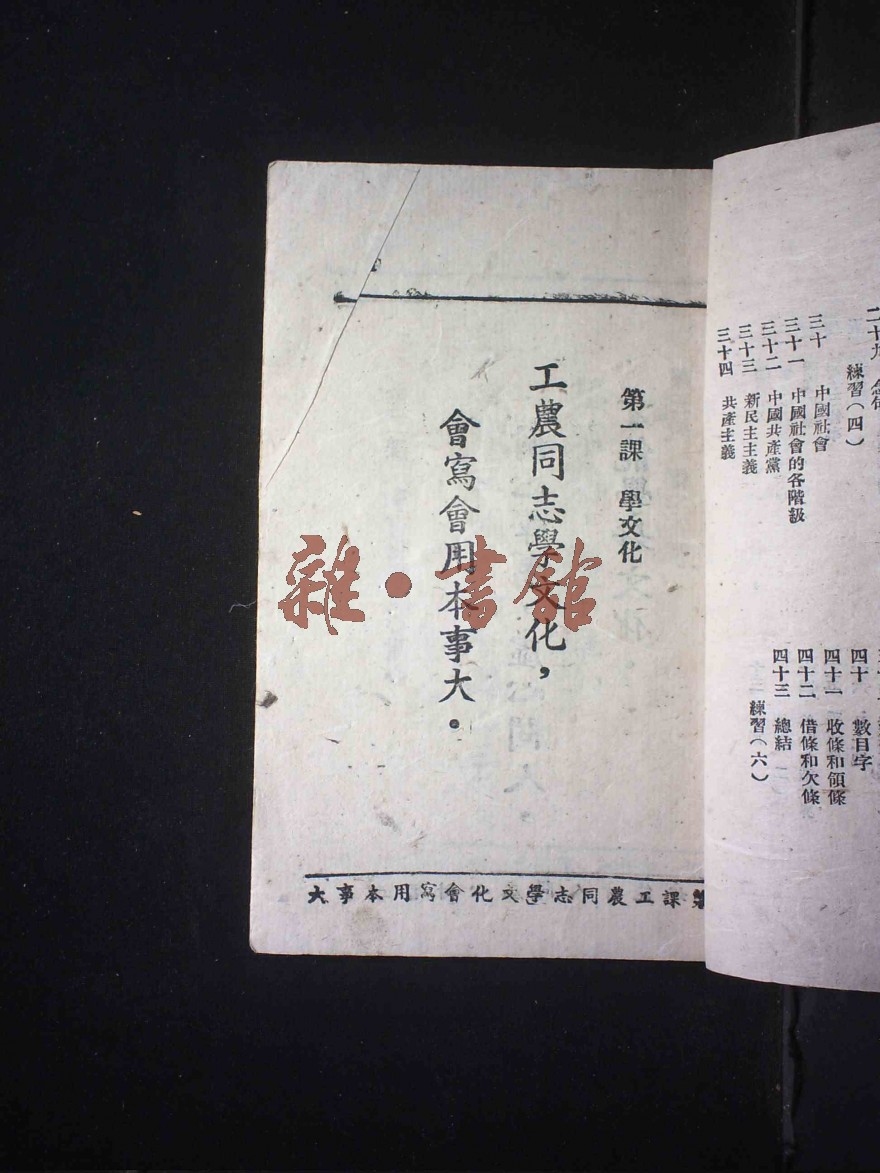 練習(四)
三十 中國社會
三十一 中國社會的各階級
三十二 中國共產黨
三十三 新民主主義
三十四 共產主義
四十 數目字
四十一 收條和領條
四十二 借條和欠條
四十三 總結
練習(六)
第一課 學文化
工農同志學文化,
會寫會用本事大。
課工農同志學文化會寫用本事大
雜·書館